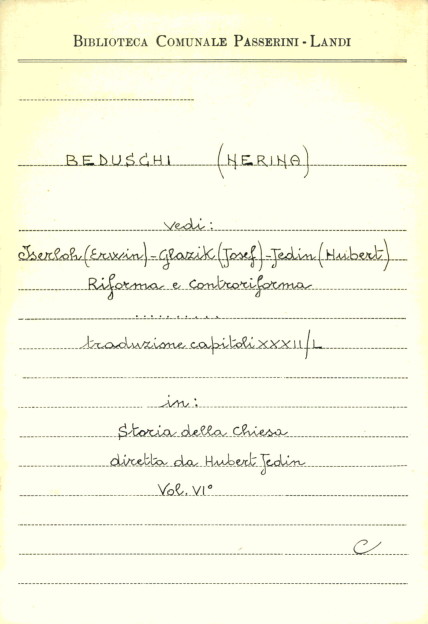 BIBLIOTECA COMUNALE PASSERINI - LANDI
BEDUSCHI (NERINA)
vedi:
Iserloh (Erwin) - Glazik (Josef) - Jedin (Hubert)
Riforma e controriforma
..........
traduzione capitoli XXXII/L
in:
Storia della Chiesa
diretta da Hubert Jedin
Vol. VI°
C